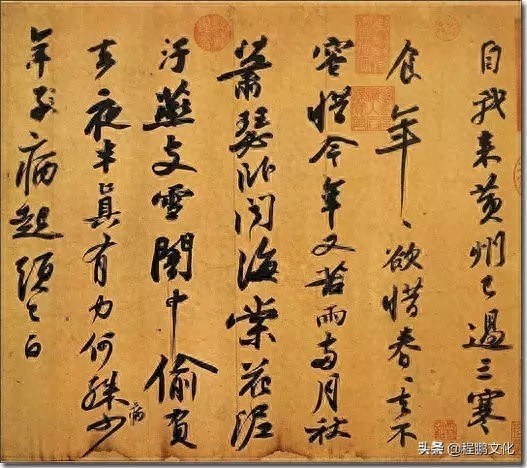 自我來黄州已過三寒
食年〻欲惜春〻去不
容惜今年又苦雨兩月秋
蕭瑟卧聞海棠花泥
汙燕支雪闇中偷負
去夜半真有力何殊少
病
年子病起頭已白
头条 @程鹏文化